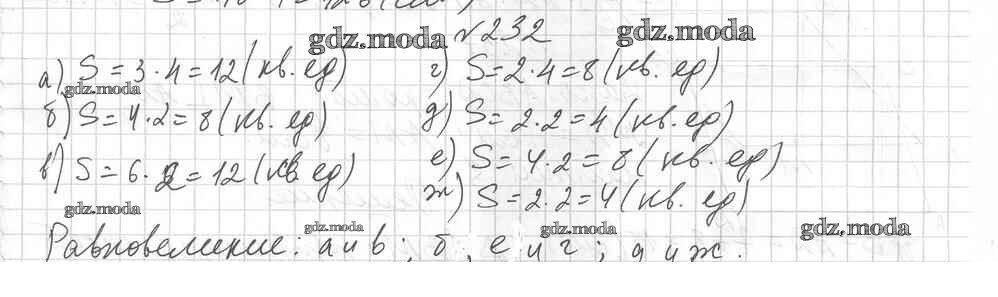 №232
а) S = 3 · 4 = 12 (кв. ед)
б) S = 4 · 2 = 8 (кв. ед)
в) S = 6 · 2 = 12 (кв ед)
г) S = 2 · 4 = 8 (кв. ед)
д) S = 2 · 2 = 4 (кв. ед)
е) S = 4 · 2 = 8 (кв. ед)
ж) S = 2 · 2 = 4 (кв. ед)
Равновеликие: а и в; б, е и г; д и ж.
gdz.moda
gdz.moda
gdz.moda
gdz.moda
gdz.moda
gdz.moda
gdz.moda